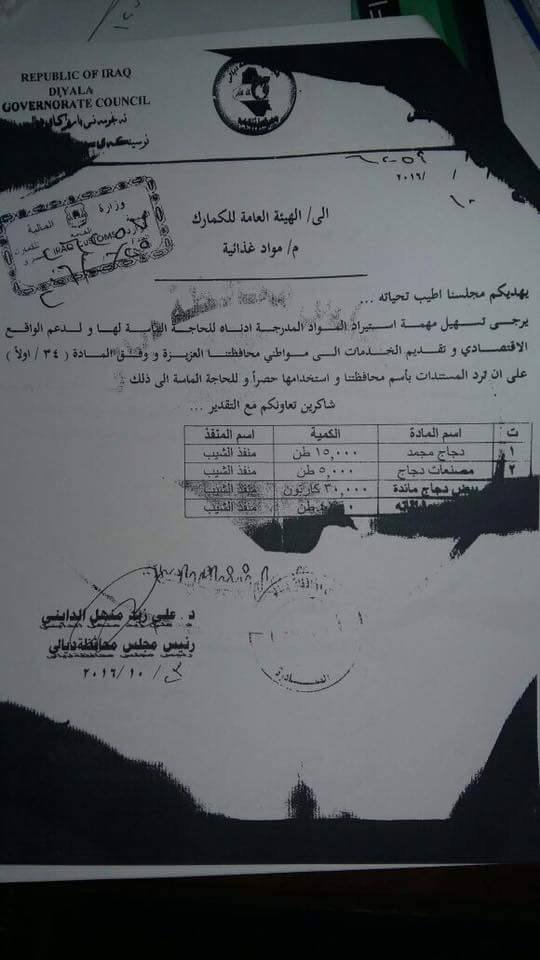 REPUBLIC OF IRAQ
DIYALA
GOVERNORATE COUNCIL
٢٠١٦/ /
وزارة
المالية
IRAQ CUSTOMS
الى/ الهيئة العامة للكمارك
م/ مواد غذائية
يهديكم مجلسنا اطيب تحياته ...
يرجى تسهيل مهمة استيراد المواد المدرجة ادناه للحاجة الماسة لها و لدعم الواقع
الاقتصادي و تقديم الخدمات الى مواطني محافظتنا العزيزة و وفق المادة ( ٣٤ / اولاً )
على ان ترد المستندات بأسم محافظتنا و استخدامها حصراً و للحاجة الماسة الى ذلك
شاكرين تعاونكم مع التقدير ...
ت اسم المادة الكمية اسم المنفذ
١ دجاج مجمد ١٥,٠٠٠ طن منفذ الشيب
٢ مصنعات دجاج ٥,٠٠٠ طن منفذ الشيب
بيض دجاج مائدة ٣٠,٠٠٠ كارتون منفذ الشيب
طن منفذ الشيب
د. علي زيد منهل الدايني
رئيس مجلس محافظة ديالى
٢٠١٦/١٠/٣
الصادرة